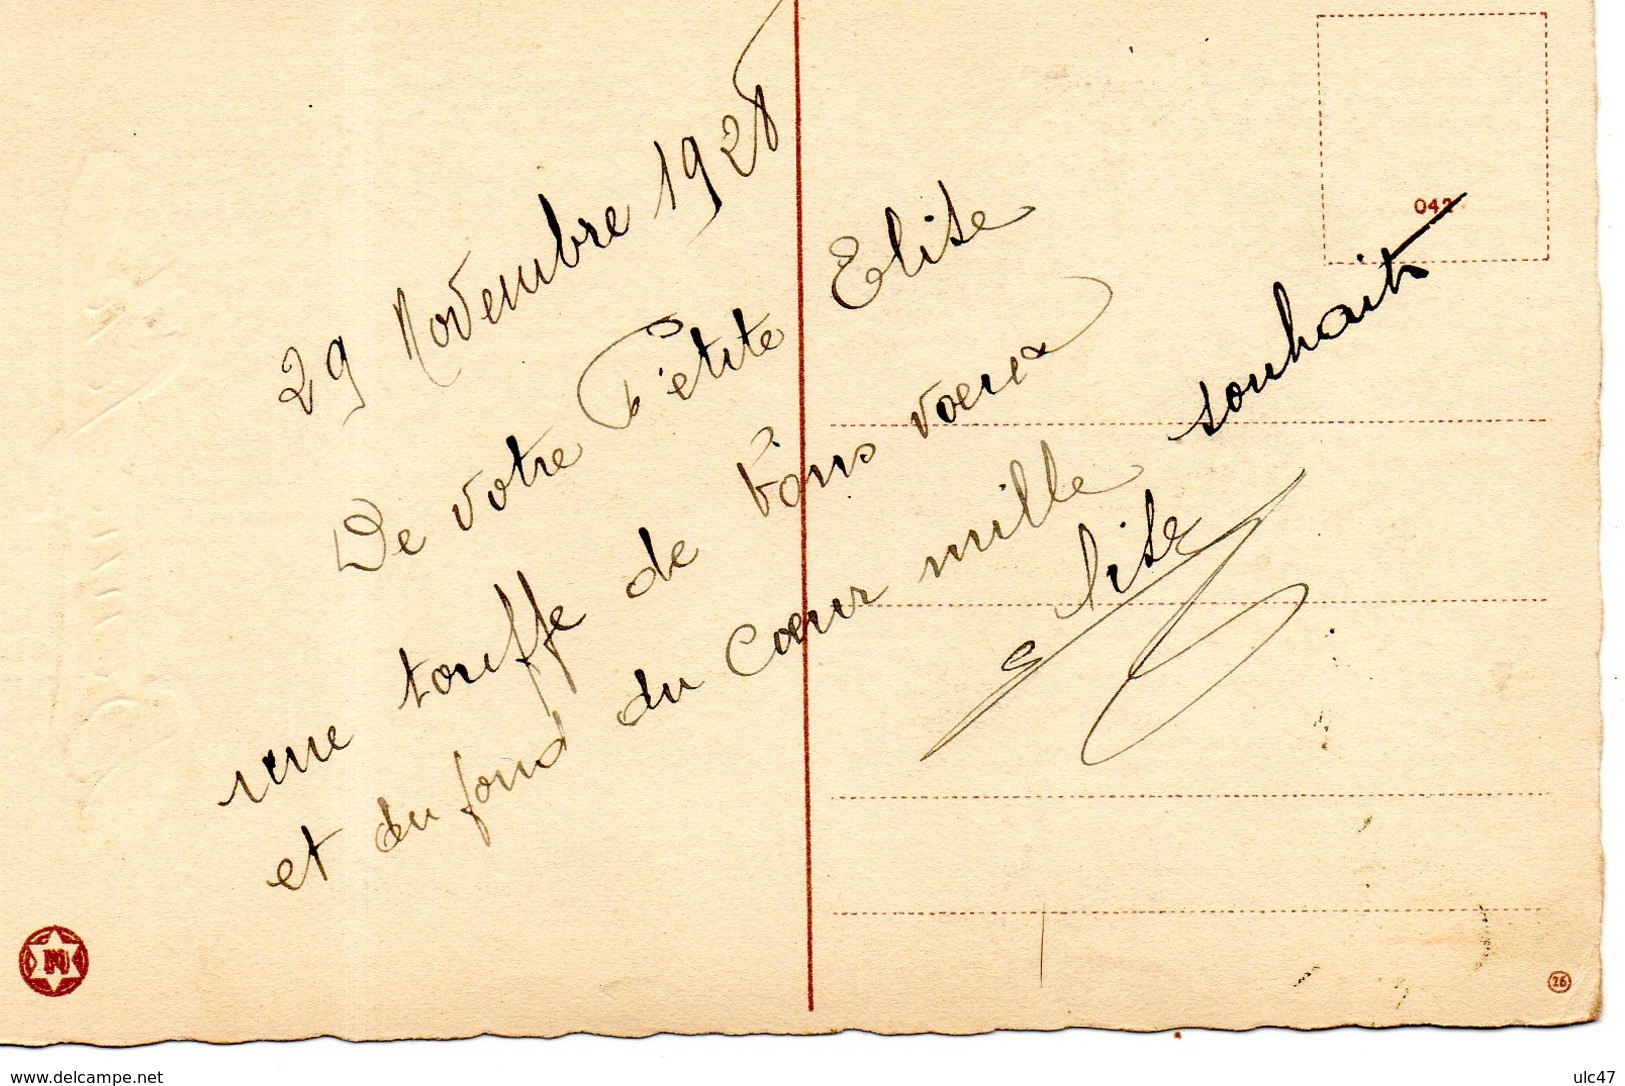 29 Novembre 1928
De votre Petite Elise
une touffe de bons voeux
et du fond du Cœur mille souhaits
Elise
042
M
26
www.delcampe.net
ulc47